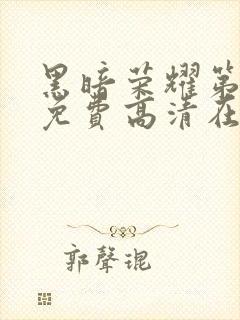 黑暗荣耀第
免費高清在
郭聲琨